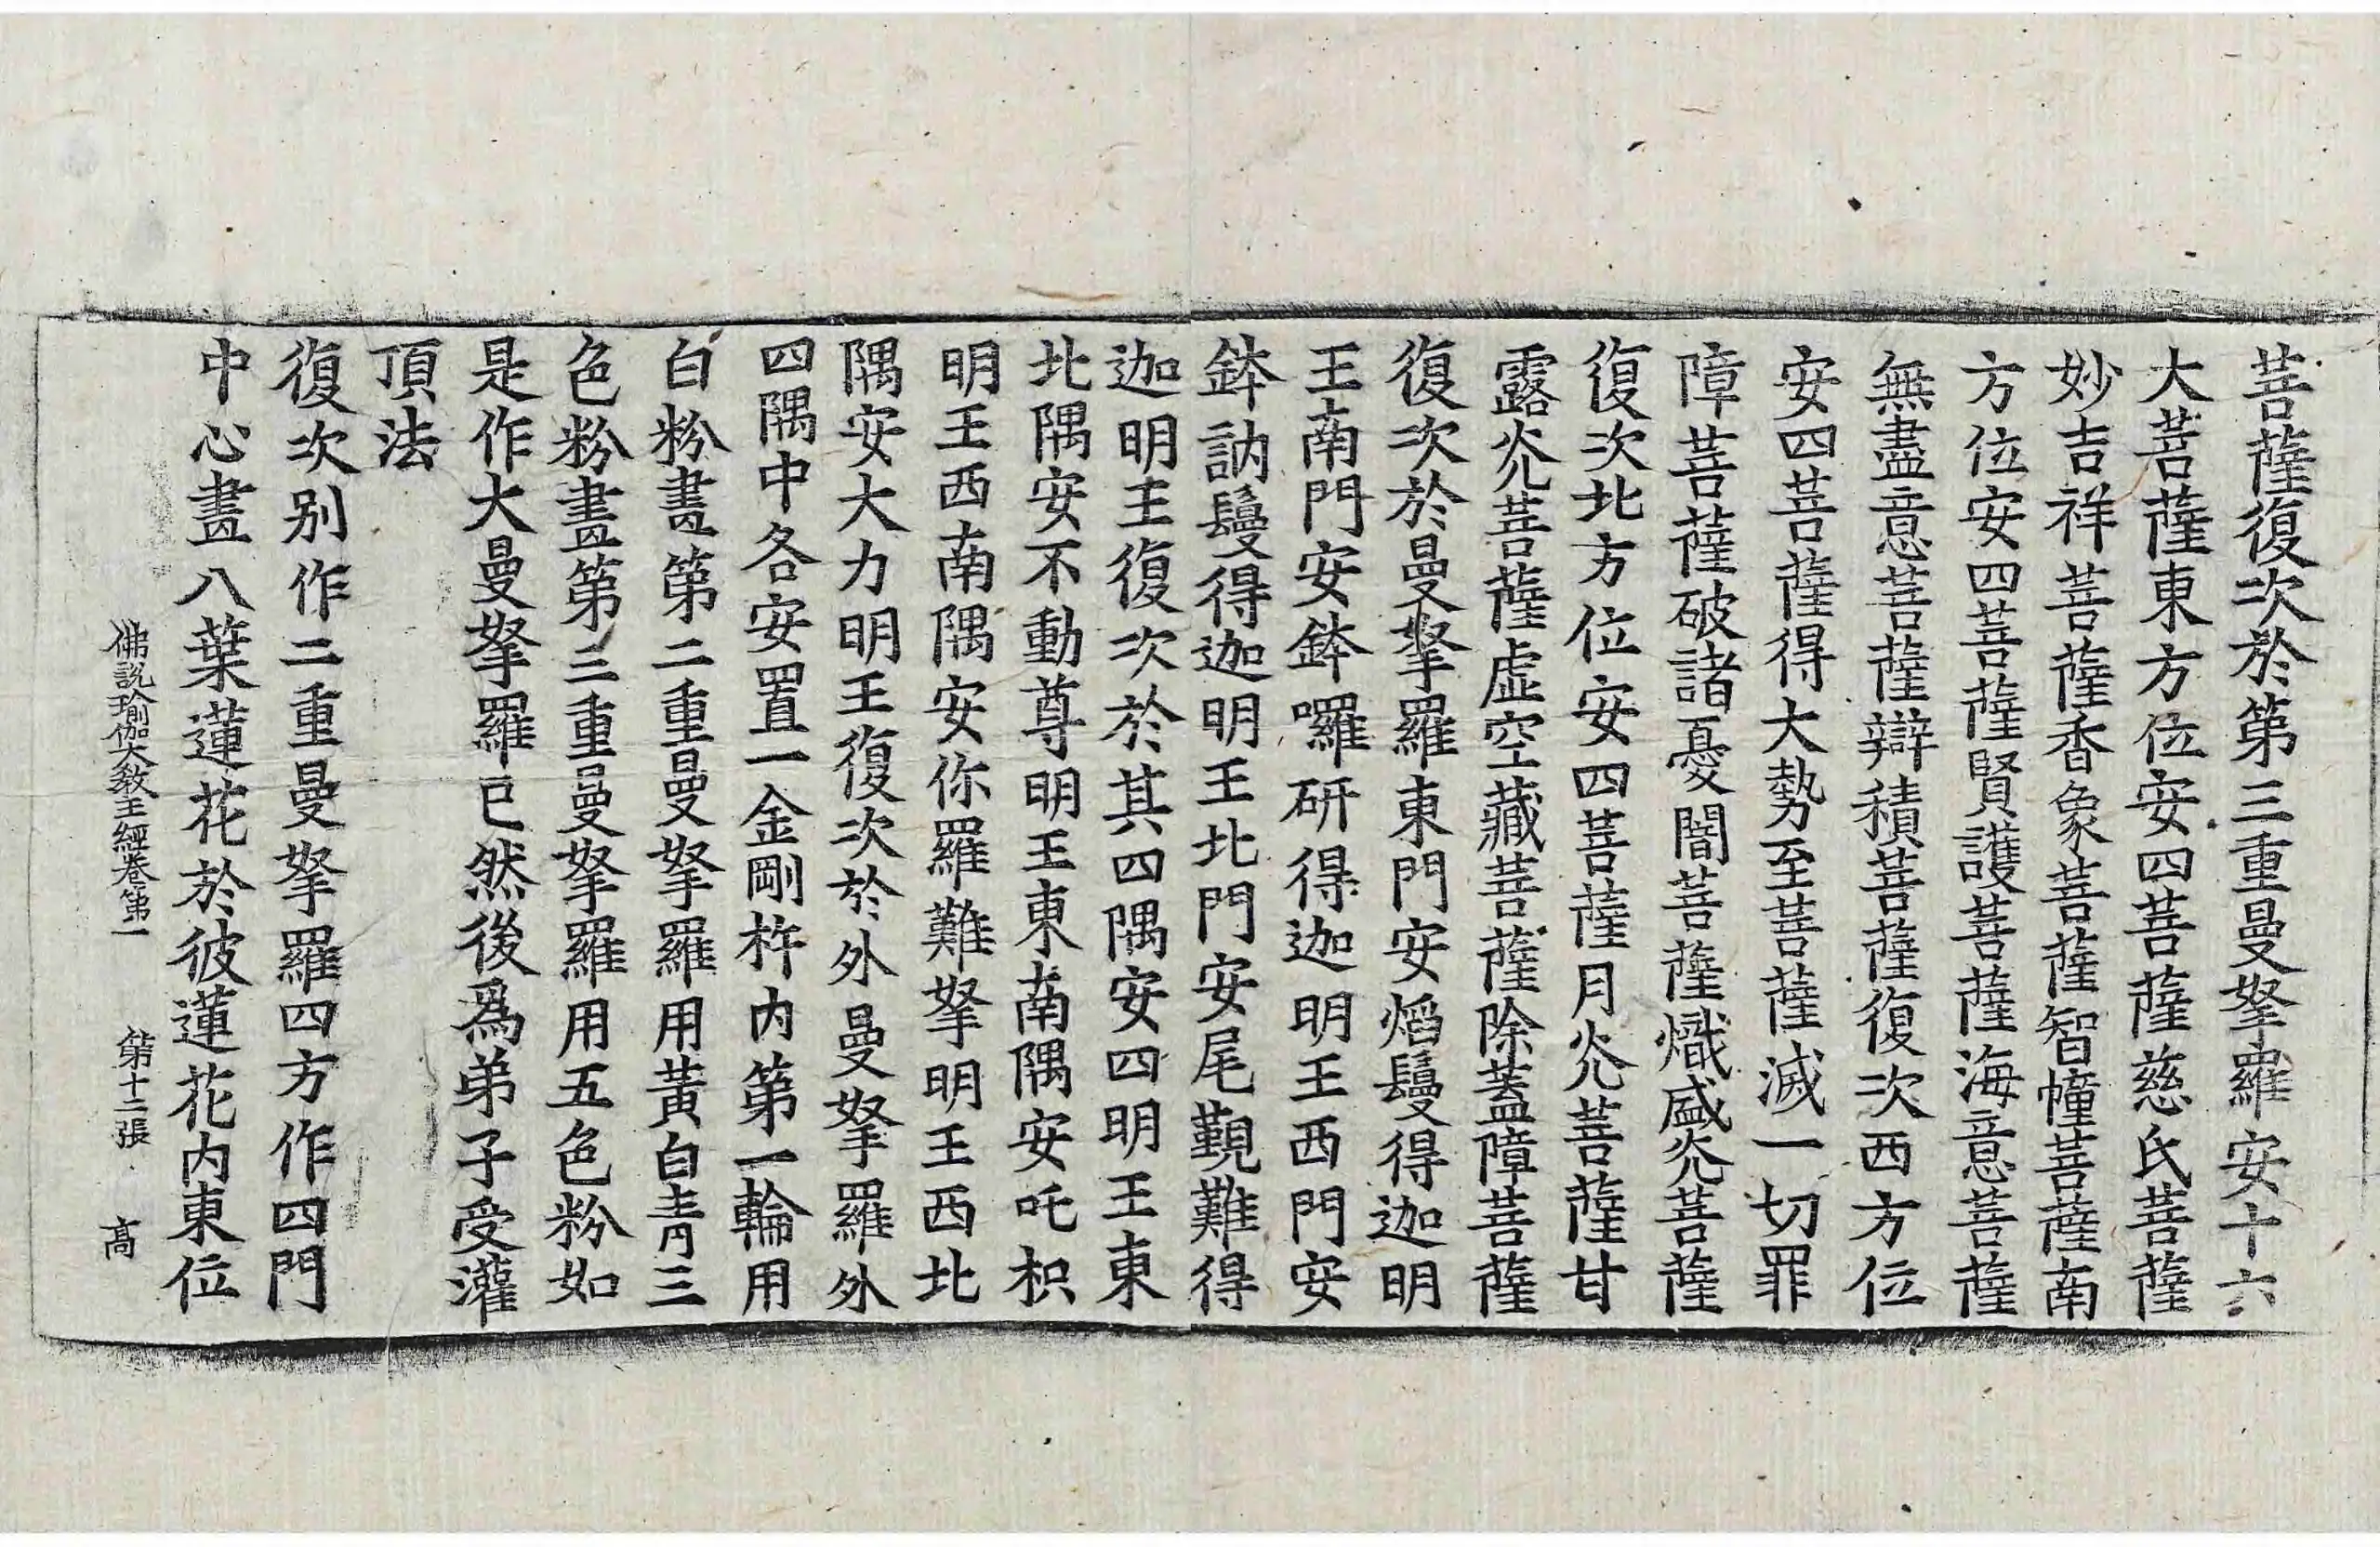 菩薩復次於第三重曼拏羅安十六
大菩薩東方位安四菩薩慈氏菩薩
妙吉祥菩薩香象菩薩智幢菩薩南
方位安四菩薩賢護菩薩海意菩薩
無盡意菩薩辯積菩薩復次西方位
安四菩薩得大勢至菩薩滅一切罪
障菩薩破諸憂闇菩薩熾盛炎菩薩
復次北方位安四菩薩月炎菩薩甘
露炎菩薩虛空藏菩薩除蓋障菩薩
復次於曼拏羅東門安焰鬘得迦明
王南門安鉢囉研得迦明王西門安
鉢訥鬘得迦明王北門安尾覲難得
迦明王復次於其四隅安四明王東
北隅安不動尊明王東南隅安吒枳
明王西南隅安你羅難拏明王西北
隅安大力明王復次於外曼拏羅外
四隅中各安置一金剛杵內第一輪用
白粉畫第二重曼拏羅用黃白青三
色粉畫第三重曼拏羅用五色粉如
是作大曼拏羅已然後爲弟子受灌
頂法
復次別作二重曼拏羅四方作四門
中心畫八葉蓮花於彼蓮花內東位
佛說瑜伽大教王經卷第一 第十二張 高